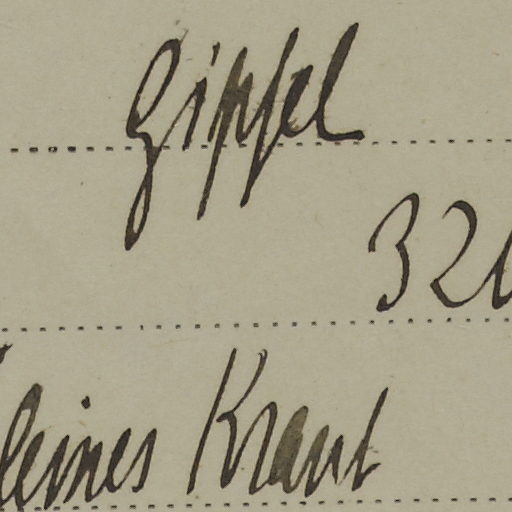 Gipfel
320
kleines Kraut